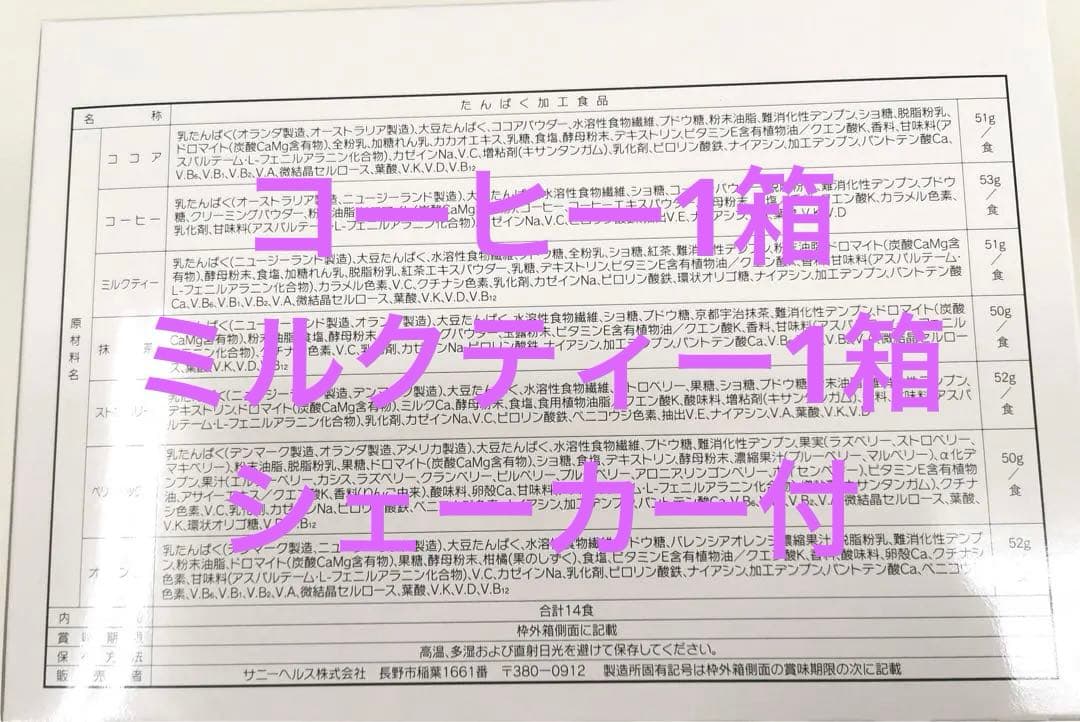 名称 たんぱく加工食品
ココア 乳たんぱく(オランダ製造、オーストラリア製造)、大豆たんぱく、ココアパウダー、水溶性食物繊維、ブドウ糖、粉末油脂、難消化性デンプン、ショ糖、脱脂粉乳、 51g/食
ドロマイト(炭酸CaMg含有)、全粉乳、加糖れん乳、カカオエキス、乳糖、食塩、酵母粉末、デキストリン、ビタミンE含有植物油/クエン酸K、香料、甘味料(ア
スパルテーム・L-フェニルアラニン化合物)、カゼインNa、V.C、増粘剤(キサンタンガム)、乳化剤、ピロリン酸鉄、ナイアシン、加工デンプン、パントテン酸Ca、
V.B₆、V.B₁、V.B₂、V.A、微結晶セルロース、葉酸、V.K、V.D、V.B₁₂
コーヒー 乳たんぱく(オーストラリア製造、ニュージーランド製造)、大豆たんぱく、水溶性食物繊維、ショ糖、難消化性デンプン、ブドウ 53g/食
糖、クリーミングパウダー、コーヒー、コーヒーエキスパウダー、カラメル色素、
乳化剤、甘味料(アスパルテーム・L-フェニルアラニン化合物)、カゼインNa、V.C、ピロリン酸鉄
ミルクティー 乳たんぱく(ニュージーランド製造)、大豆たんぱく、水溶性食物繊維、ブドウ糖、全粉乳、ショ糖、紅茶、難消化性デンプン、粉末油脂、ドロマイト(炭酸CaMg含 51g/食
有)、酵母粉末、食塩、加糖れん乳、脱脂粉乳、紅茶エキスパウダー、乳糖、デキストリン、ビタミンE含有植物油/クエン酸K、香料、甘味料(アスパルテーム・
L-フェニルアラニン化合物)、カラメル色素、V.C、クチナシ色素、乳化剤、カゼインNa、ピロリン酸鉄、環状オリゴ糖、ナイアシン、加工デンプン、パントテン酸
Ca、V.B₆、V.B₁、V.B₂、V.A、微結晶セルロース、葉酸、V.K、V.D、V.B₁₂
原材料名
抹茶 乳たんぱく(ニュージーランド製造、オランダ製造)、大豆たんぱく、水溶性食物繊維、ブドウ糖、京都宇治抹茶、難消化性デンプン、ドロマイト(炭酸 50g/食
CaMg含有)、粉末油脂、食塩、酵母粉末、クエン酸K、香料、甘味料
ン化合物)、クチナシ色素、V.C、乳化剤、カゼインNa、ピロリン酸鉄、ナイアシン、加工デンプン、パントテン酸Ca
ストロベリー 乳たんぱく(ニュージーランド製造、デンマーク製造)、大豆たんぱく、水溶性食物繊維、ストロベリー、果糖、ショ糖、ブドウ糖 52g/食
デキストリン、ドロマイト(炭酸CaMg含有)、ミルクCa、酵母粉末、食塩、食用植物油脂/クエン酸K、酸味料、増粘剤(キサンタンガム)、香料
ルテーム・L-フェニルアラニン化合物)、乳化剤、カゼインNa、V.C、ピロリン酸鉄、ベニコウジ色素、抽出V.E、ナイアシン、V.A、葉酸、V.K、V.D
ベリー 乳たんぱく(デンマーク製造、オランダ製造、アメリカ製造)、大豆たんぱく、水溶性食物繊維、ブドウ糖、難消化性デンプン、果実(ラズベリー、ストロベリー、 50g/食
マキベリー)、粉末油脂、脱脂粉乳、果糖、ドロマイト(炭酸CaMg含有)、ショ糖、食塩、デキストリン、酵母粉末、濃縮果汁(ブルーベリー、マルベリー)、α化デ
ンプン、果汁(エルダーベリー、カシス、ラズベリー、クランベリー、ビルベリー、ブルーベリー、アロニア、リンゴンベリー、ボイセンベリー)、ビタミンE含有植物
油、アサイーエキス/クエン酸K、香料(りんご由来)、酸味料、卵殻Ca、甘味料
V.K、環状オリゴ糖、V.D、V.B₁₂
オレンジ 乳たんぱく(デンマーク製造、ニュージーランド製造)、大豆たんぱく、水溶性食物繊維、ブドウ糖、バレンシアオレンジ濃縮果汁、脱脂粉乳、難消化性デンプ 52g/食
ン、粉末油脂、ドロマイト(炭酸CaMg含有)、果糖、酵母粉末、柑橘(果のしずく)、食塩、ビタミンE含有植物油/クエン酸K、香料、酸味料、卵殻Ca、クチナシ
色素、甘味料(アスパルテーム・L-フェニルアラニン化合物)、V.C、カゼインNa、乳化剤、ピロリン酸鉄、ナイアシン、加工デンプン、パントテン酸Ca、ベニコウジ
色素、V.B₆、V.B₁、V.B₂、V.A、微結晶セルロース、葉酸、V.K、V.D、V.B₁₂
合計14食
賞味期限 枠外箱側面に記載
保存方法 高温、多湿および直射日光を避けて保存してください。
販売者 サニーヘルス株式会社 長野市稲葉1661番 〒380-0912 製造所固有記号は枠外箱側面の賞味期限の次に記載
コーヒー1箱
ミルクティー1箱
シェーカー付